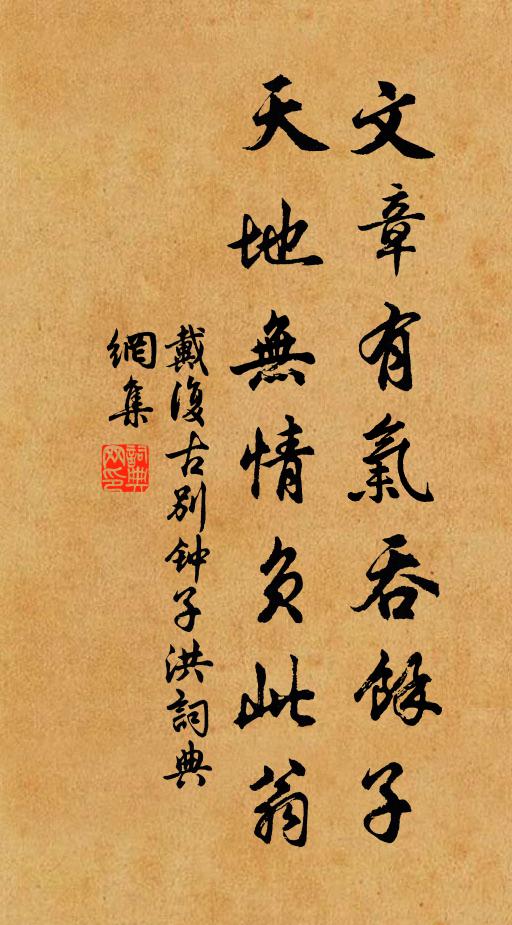 文章有氣吞餘子
天地無情負此翁
戴復古別钟子洪詞典
網集
詞典
网印